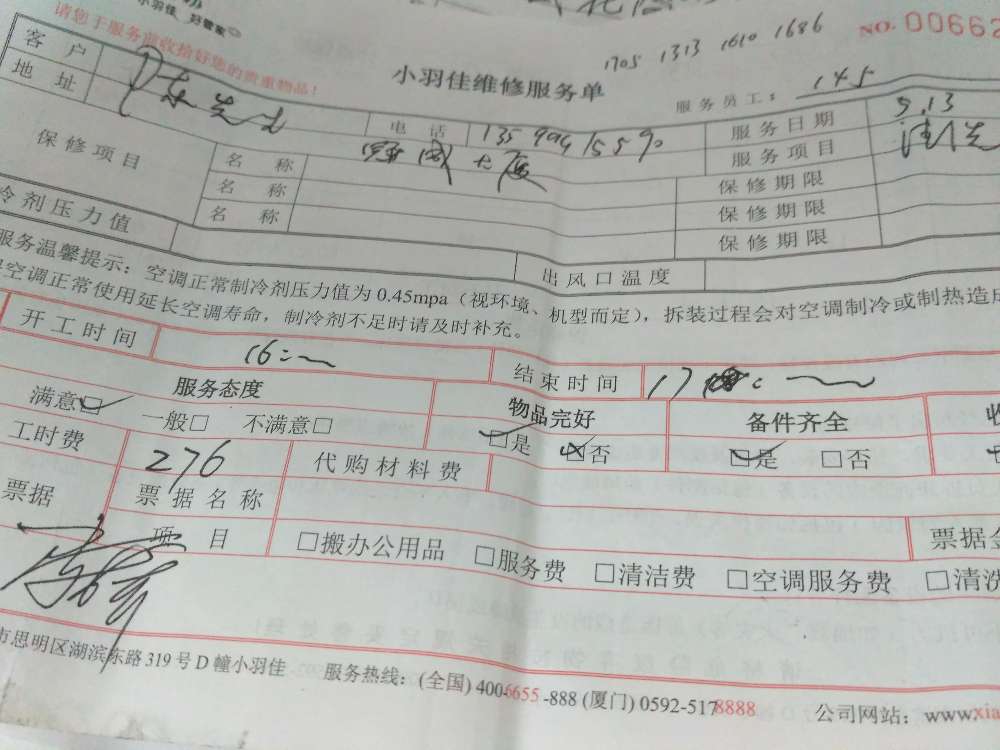 小羽佳 好管家
请您于服务前收拾好您的贵重物品！
NO. 00662
1705 1313 1610 1686
小羽佳维修服务单
服务员工： 145
客 户
电 话
服务日期 9.13
地 址
服务项目 清洗
保修项目 名 称 保修期限
名 称 保修期限
名 称 保修期限
冷剂压力值 出风口温度
服务温馨提示：空调正常制冷剂压力值为 0.45mpa（视环境、机型而定），拆装过程会对空调制冷或制热造成
空调正常使用延长空调寿命，制冷剂不足时请及时补充。
开工时间 16:
结束时间 17
服务态度 物品完好 备件齐全 收
满意□ 一般□ 不满意□ □是 □否 □是 □否
工时费 276 代购材料费
票据 票据名称 票据金
项 目 □搬办公用品 □服务费 □清洁费 □空调服务费 □清洗
市思明区湖滨东路 319 号 D 幢小羽佳 服务热线：(全国) 400-6655-888 (厦门) 0592-5178888 公司网站：www.xia